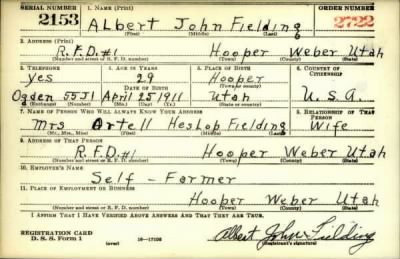 SERIAL NUMBER 1. NAME (Print) ORDER NUMBER
2153 Albert John Fielding 2722
(First) (Middle) (Last)
2. ADDRESS (Print)
R.F.D. #1 Hooper Weber Utah
(Number and street or R. F. D. number) (Town) (County) (State)
3. TELEPHONE 4. AGE IN YEARS 5. PLACE OF BIRTH 6. COUNTRY OF CITIZENSHIP
Yes 29 Hooper
DATE OF BIRTH (Town or county)
Ogden 55J1 April 25 1911 Utah U.S.A.
(Exchange) (Number) (Mo.) (Day) (Yr.) (State or country)
7. NAME OF PERSON WHO WILL ALWAYS KNOW YOUR ADDRESS 8. RELATIONSHIP OF THAT PERSON
Mrs Artell Heslop Fielding Wife
(Mr., Mrs., Miss) (First) (Middle) (Last)
9. ADDRESS OF THAT PERSON
R.F.D. #1 Hooper Weber Utah
(Number and street or R. F. D. number) (Town) (County) (State)
10. EMPLOYER'S NAME
Self - Farmer
11. PLACE OF EMPLOYMENT OR BUSINESS
Hooper Weber Utah
(Number and street or R. F. D. number) (Town) (County) (State)
I AFFIRM THAT I HAVE VERIFIED ABOVE ANSWERS AND THAT THEY ARE TRUE.
REGISTRATION CARD
D. S. S. Form 1 (over) 16-17105 Albert John Fielding
(Registrant's signature)